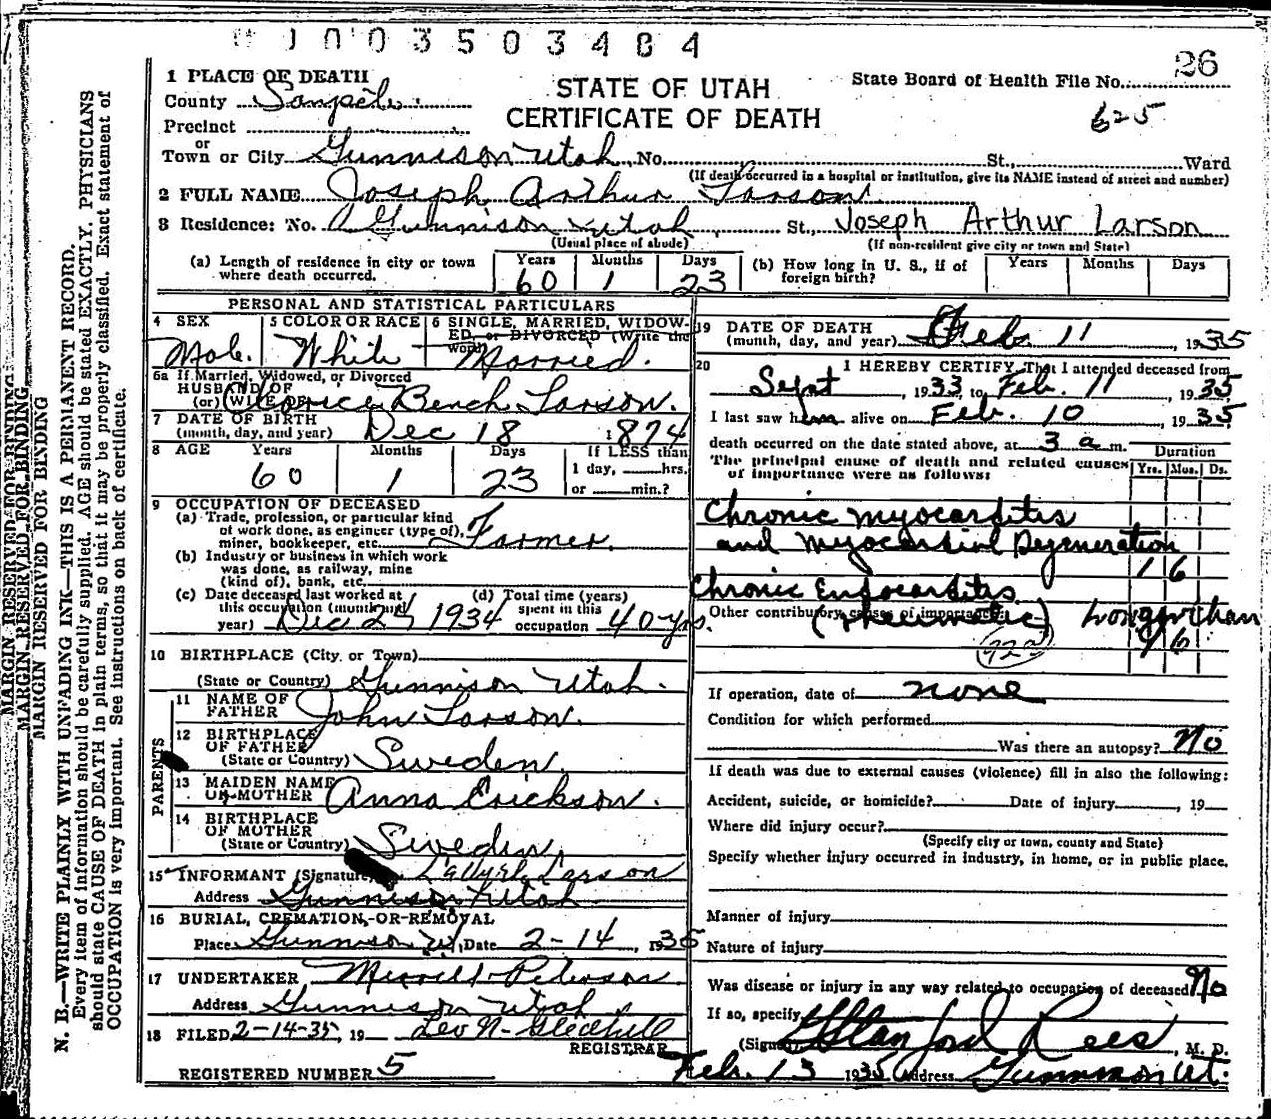 00035034 4
26
1 PLACE OF DEATH
STATE OF UTAH
CERTIFICATE OF DEATH
State Board of Health File No.
625
County Sanpete
Precinct
or
Town or City Gunnison Utah, No. St., Ward
(If death occurred in a hospital or institution, give its NAME instead of street and number)
2 FULL NAME Joseph Arthur Larson
3 Residence: No. Gunnison Utah St., Joseph Arthur Larson
(Usual place of abode) (If non-resident give city or town and State)
(a) Length of residence in city or town where death occurred. Years 60 Months 1 Days 23
(b) How long in U. S., if of foreign birth? Years Months Days
PERSONAL AND STATISTICAL PARTICULARS
4 SEX Male
5 COLOR OR RACE White
6 SINGLE, MARRIED, WIDOWED or DIVORCED (Write the word) Married.
6a If Married, Widowed, or Divorced
HUSBAND OF
(or) WIFE OF Bench Larson.
7 DATE OF BIRTH
(month, day, and year) Dec 18 1874
8 AGE Years 60 Months 1 Days 23 If LESS than 1 day, hrs. or min.?
9 OCCUPATION OF DECEASED
(a) Trade, profession, or particular kind of work done, as engineer (type of), miner, bookkeeper, etc. Farmer.
(b) Industry or business in which work was done, as railway, mine (kind of), bank, etc.
(c) Date deceased last worked at this occupation (month and year) Dec 24 1934
(d) Total time (years) spent in this occupation 40 yrs.
10 BIRTHPLACE (City or Town)
(State or Country) Gunnison Utah.
PARENTS
11 NAME OF FATHER John Larson.
12 BIRTHPLACE OF FATHER (State or Country) Sweden.
13 MAIDEN NAME OF MOTHER Anna Erickson.
14 BIRTHPLACE OF MOTHER (State or Country) Sweden.
15 INFORMANT (Signature) Larson
Address Gunnison Utah
16 BURIAL, CREMATION, OR REMOVAL
Place Gunnison Ut, Date 2-14, 1935
17 UNDERTAKER Merrill Peterson
Address Gunnison Utah
18 FILED 2-14-35, 19 Leo N. Gledhill
REGISTRAR
REGISTERED NUMBER 5
19 DATE OF DEATH
(month, day, and year) Feb. 11, 1935
20 I HEREBY CERTIFY, That I attended deceased from
Sept, 1933, to Feb. 11, 1935
I last saw him alive on Feb. 10, 1935
death occurred on the date stated above, at 3 a m.
The principal cause of death and related causes of importance were as follows:
Duration
Yrs. Mos. Ds.
Chronic myocarditis
and Myocardial Degeneration
1 6
Chronic Endocarditis
Other contributory causes of importance:
(rheumatic) longer than
1 6
If operation, date of none
Condition for which performed
Was there an autopsy? No
If death was due to external causes (violence) fill in also the following:
Accident, suicide, or homicide? Date of injury, 19
Where did injury occur?
(Specify city or town, county and State)
Specify whether injury occurred in industry, in home, or in public place.
Manner of injury
Nature of injury
Was disease or injury in any way related to occupation of deceased? No
If so, specify
(Signed) Stanford Rees, M. D.
Feb. 13 1935 Address Gunnison Ut.
MARGIN RESERVED FOR BINDING
MARGIN RESERVED FOR BINDING
MARGIN RESERVED FOR BINDING
N. B.—WRITE PLAINLY WITH UNFADING INK—THIS IS A PERMANENT RECORD.
Every item of information should be carefully supplied. AGE should be stated EXACTLY. PHYSICIANS
should state CAUSE OF DEATH in plain terms, so that it may be properly classified. Exact statement of
OCCUPATION is very important. See instructions on back of certificate.